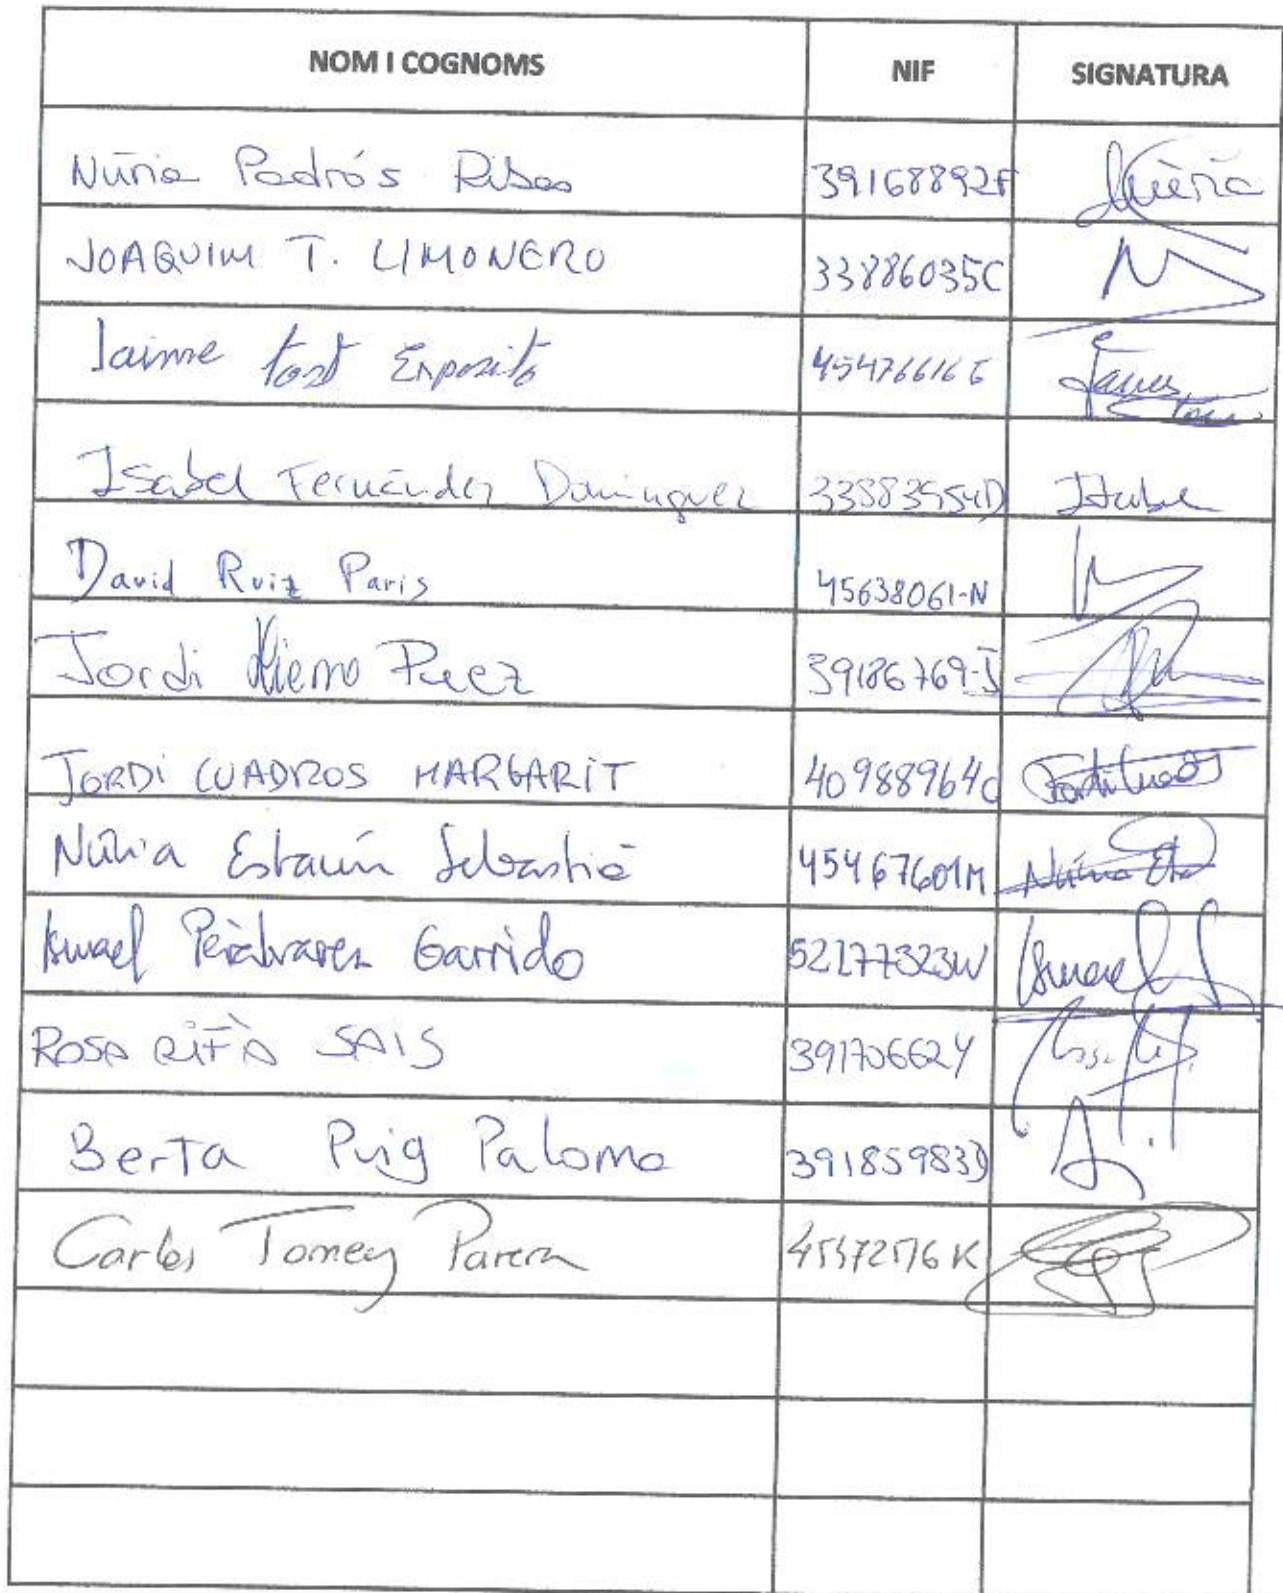 NOM I COGNOMS NIF SIGNATURA
Núria Padrós Ribas 39168892F Núria
JOAQUIM T. LIMONERO 33886035C
Jaime Tost Exposito
Isabel Fernández Dominguez Isabel
David Ruiz Paris 45638061-N
Jordi Hierro 39186769-J
JORDI CUADROS MARGARIT 40988964C Jordi Cuadros
Núria Estaún Sebastià 45467601M Núria
Ismael Peralvarez Garrido 52177323W Ismael
ROSA RIFÀ SAIS 39170662Y
Berta Puig Paloma 39185983D
Carles Tomey Parera